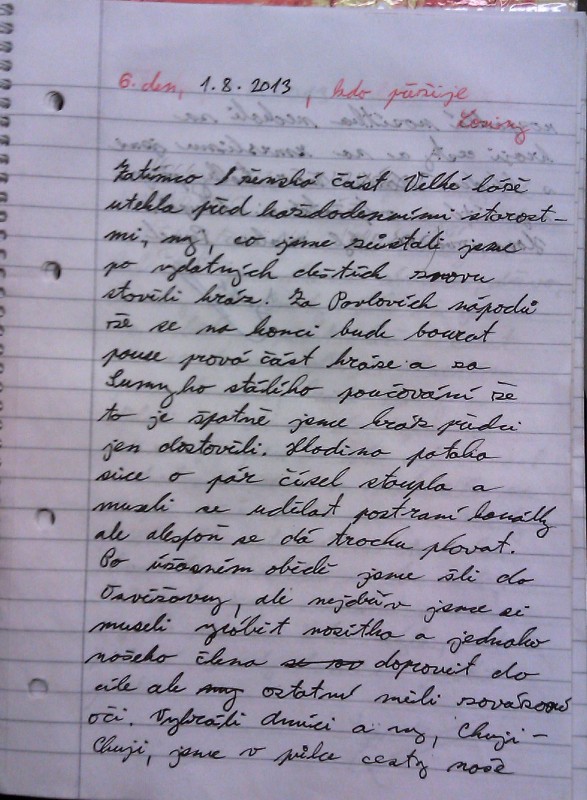 6. den, 1.8.2013, kdo přežije
Zatímco 1 ženská část Velké
utekla před každodenními starost-
mi, my, co jsme zůstali jsme
po vydatných deštích znovu
stavěli hráz. Za Pavlových nápodů
že se na konci bude bourat
pouze pravá část hráze a za
stálího poučování že
to je špatně jsme hráz předci
jen dostavěli. Hladina potoka
sice o pár čísel stoupla a
museli se udělat postraní kanálky
ale alespoň se dá trochu plovat.
Po úžasném obědě jsme šli do
ale nejdřív jsme si
museli vyrobit nosítka a jednoho
našeho člena dopravit do
cíle ale my ostatní měli zavázané
oči. Vyhráli a my, Chuji-
Chuji, jsme v půlce cesty naše